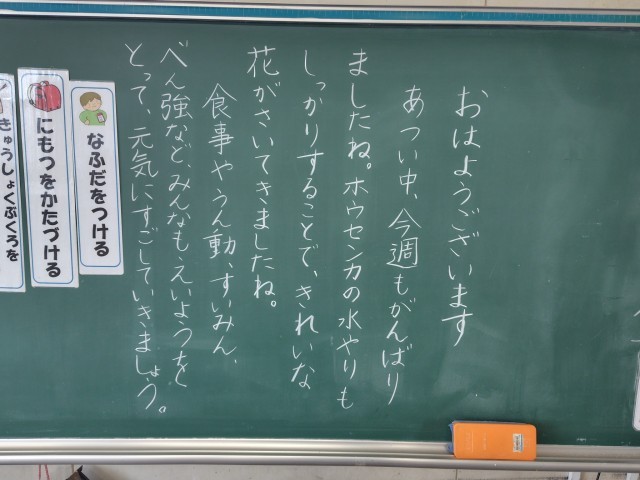 おはようございます
あつい中、今週もがんばり
ましたね。ホウセンカの水やりも
しっかりすることで、きれいな
花がさいてきましたね。
食事やうん動、すいみん、
べん強など、みんなも、えいようをく
とって、元気にすごしていきましょう。
なふだをつける
にもつをかたづける
きゅうしょくぶくろを